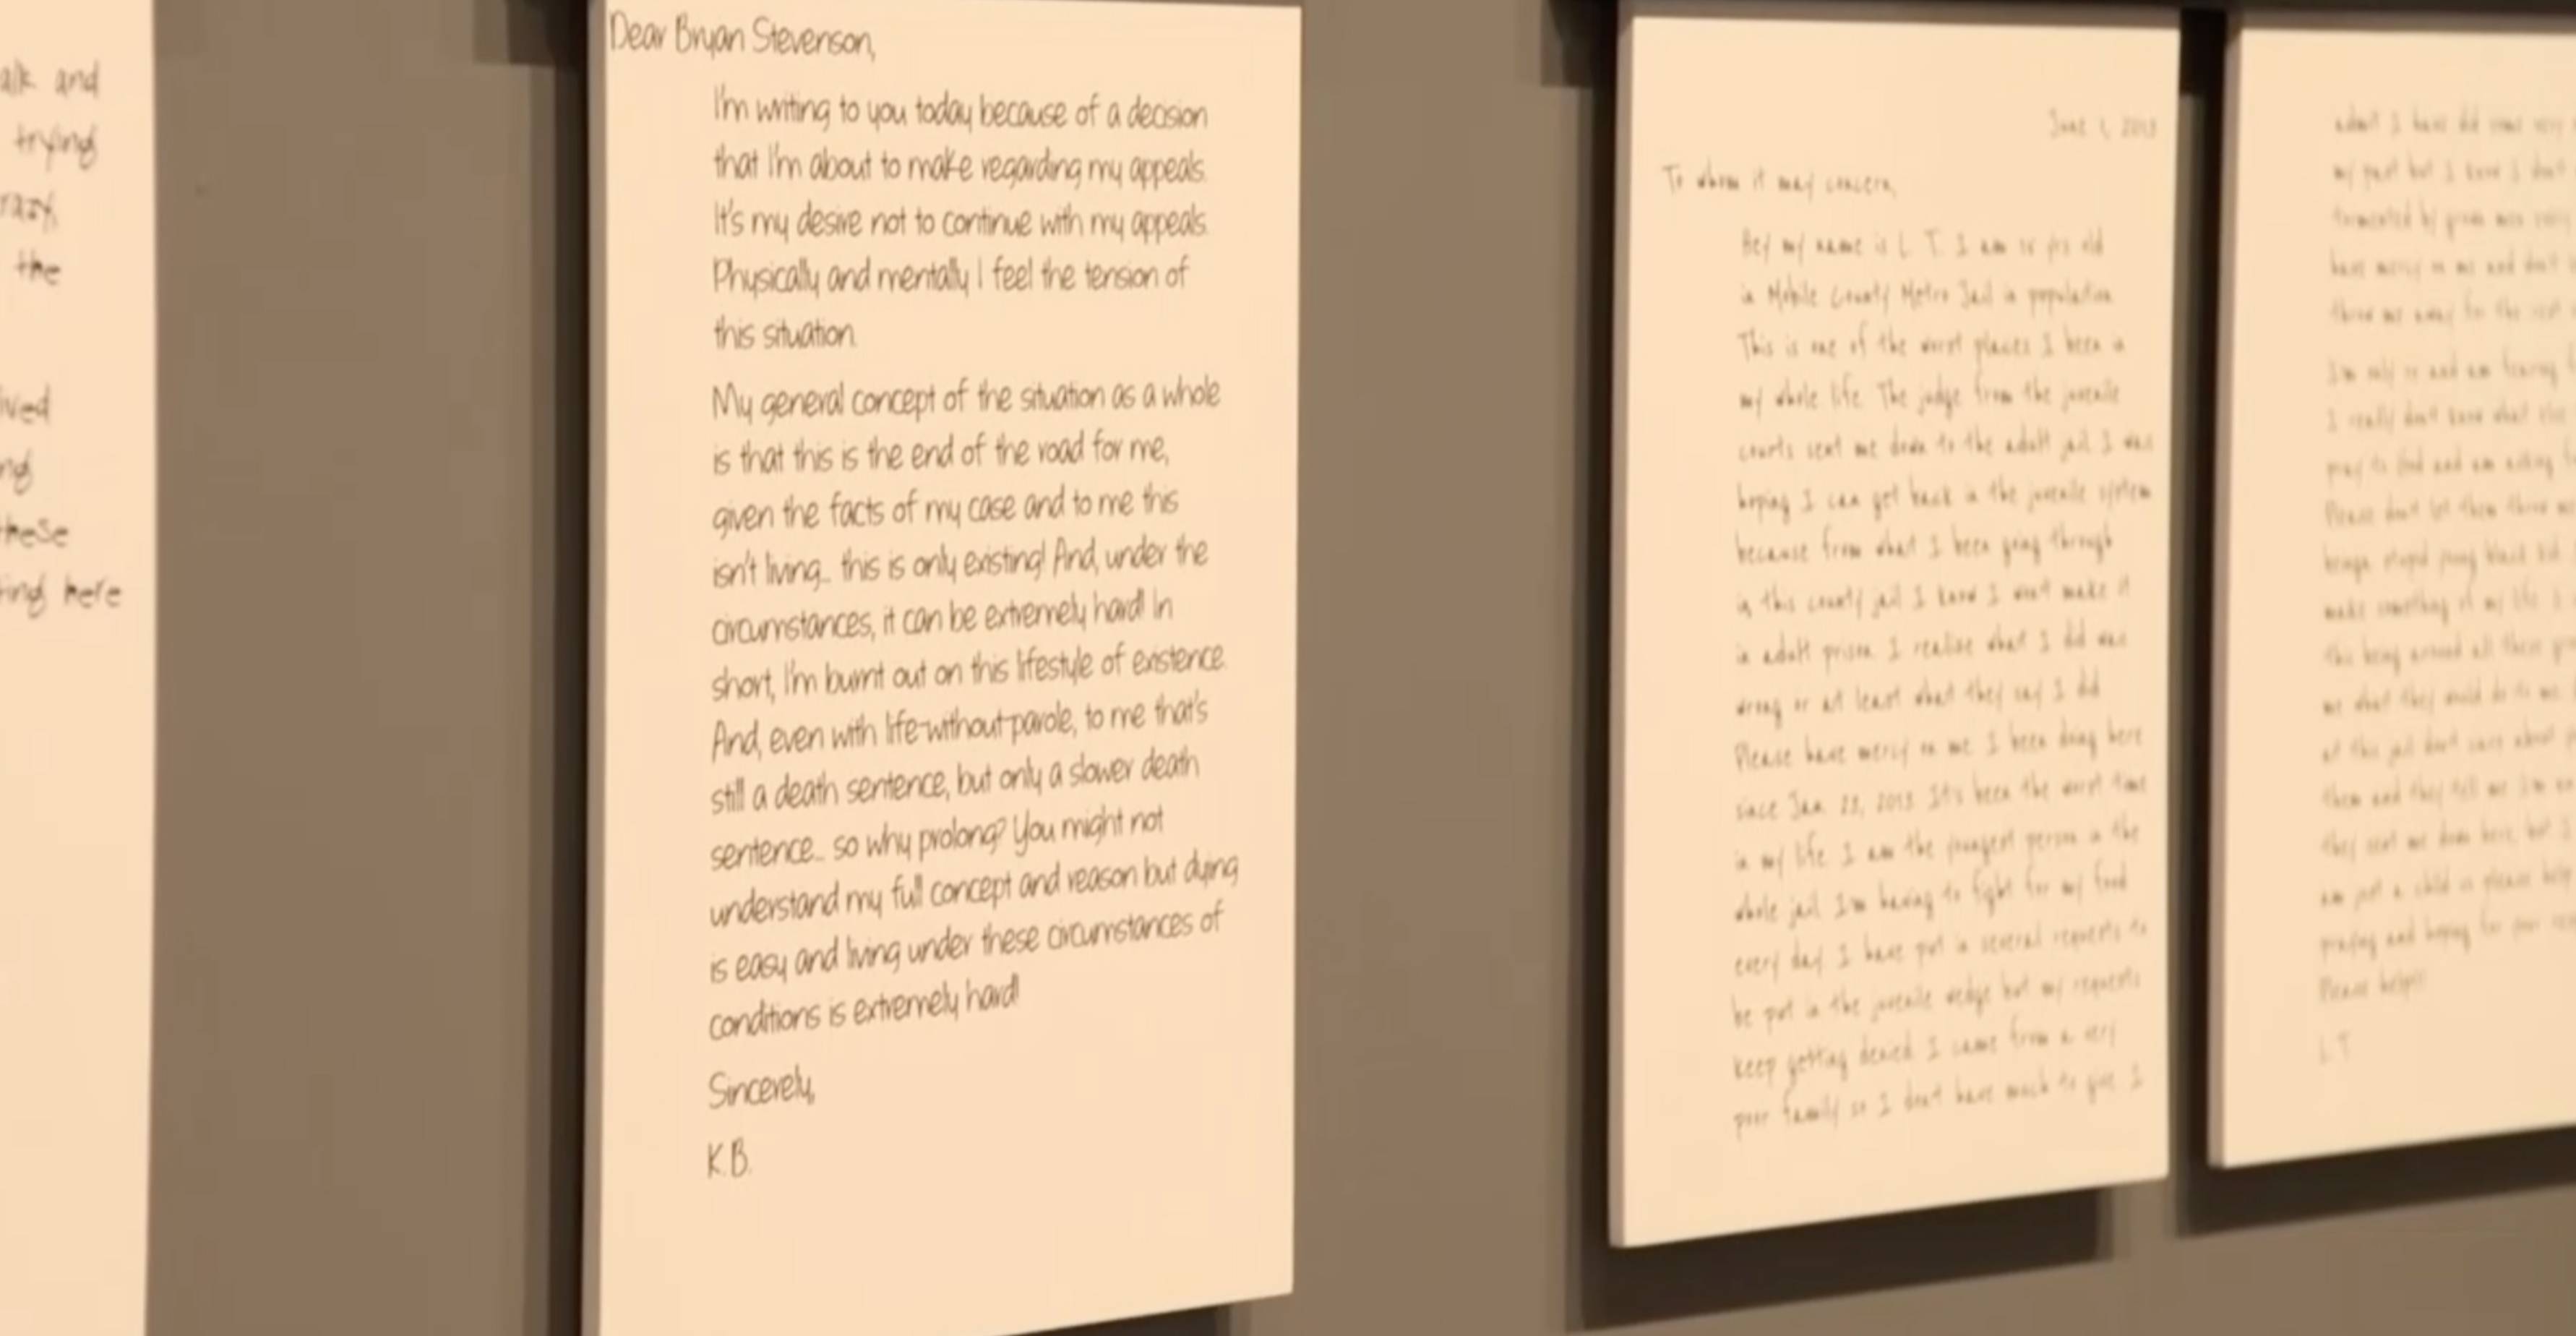 alk and
trying
razy,
the
ived
ng
these
ting here
Dear Bryan Stevenson,
I'm writing to you today because of a decision
that I'm about to make regarding my appeals.
It's my desire not to continue with my appeals.
Physically and mentally I feel the tension of
this situation.
My general concept of the situation as a whole
is that this is the end of the road for me,
given the facts of my case and to me this
isn't living... this is only existing! And, under the
circumstances, it can be extremely hard! In
short, I'm burnt out on this lifestyle of existence.
And, even with life-without-parole, to me that's
still a death sentence, but only a slower death
sentence... so why prolong? You might not
understand my full concept and reason but dying
is easy and living under these circumstances of
conditions is extremely hard!
Sincerely,
K.B.
June 1, 2013
To whom it may concern,
Hey my name is L. T. I am yrs old
in Mobile County Metro Jail in population.
This is one of the worst places I been in
my whole life. The judge from the juvenile
courts sent me down to the adult jail. I was
hoping I can get back in the juvenile system
because from what I been going through
in this county jail I know I won't make it
in adult prison. I realize what I did was
wrong or at least what they say I did.
Please have mercy on me. I been doing here
since Jan. 23, 2013. It's been the worst time
in my life. I am the youngest person in the
whole jail. I'm having to fight for my food
every day. I have put in several requests to
be put in the juvenile wedge but my requests
keep getting denied. I came from a very
poor family so I don't have much to give. I
admit I have did some very
my past but I know I don't
tormented by grown men
have mercy on me and don't
throw me away for the rest
I'm only and am
I really don't know what else
pray to God and am asking
Please don't let them throw me
young black kid
make something of my life. I
this being around all these
me what they would do to me.
at this jail don't care about
them and they tell me I'm
they sent me down here, but I
am just a child so please help
praying and hoping for your
Please help!!
L.T.